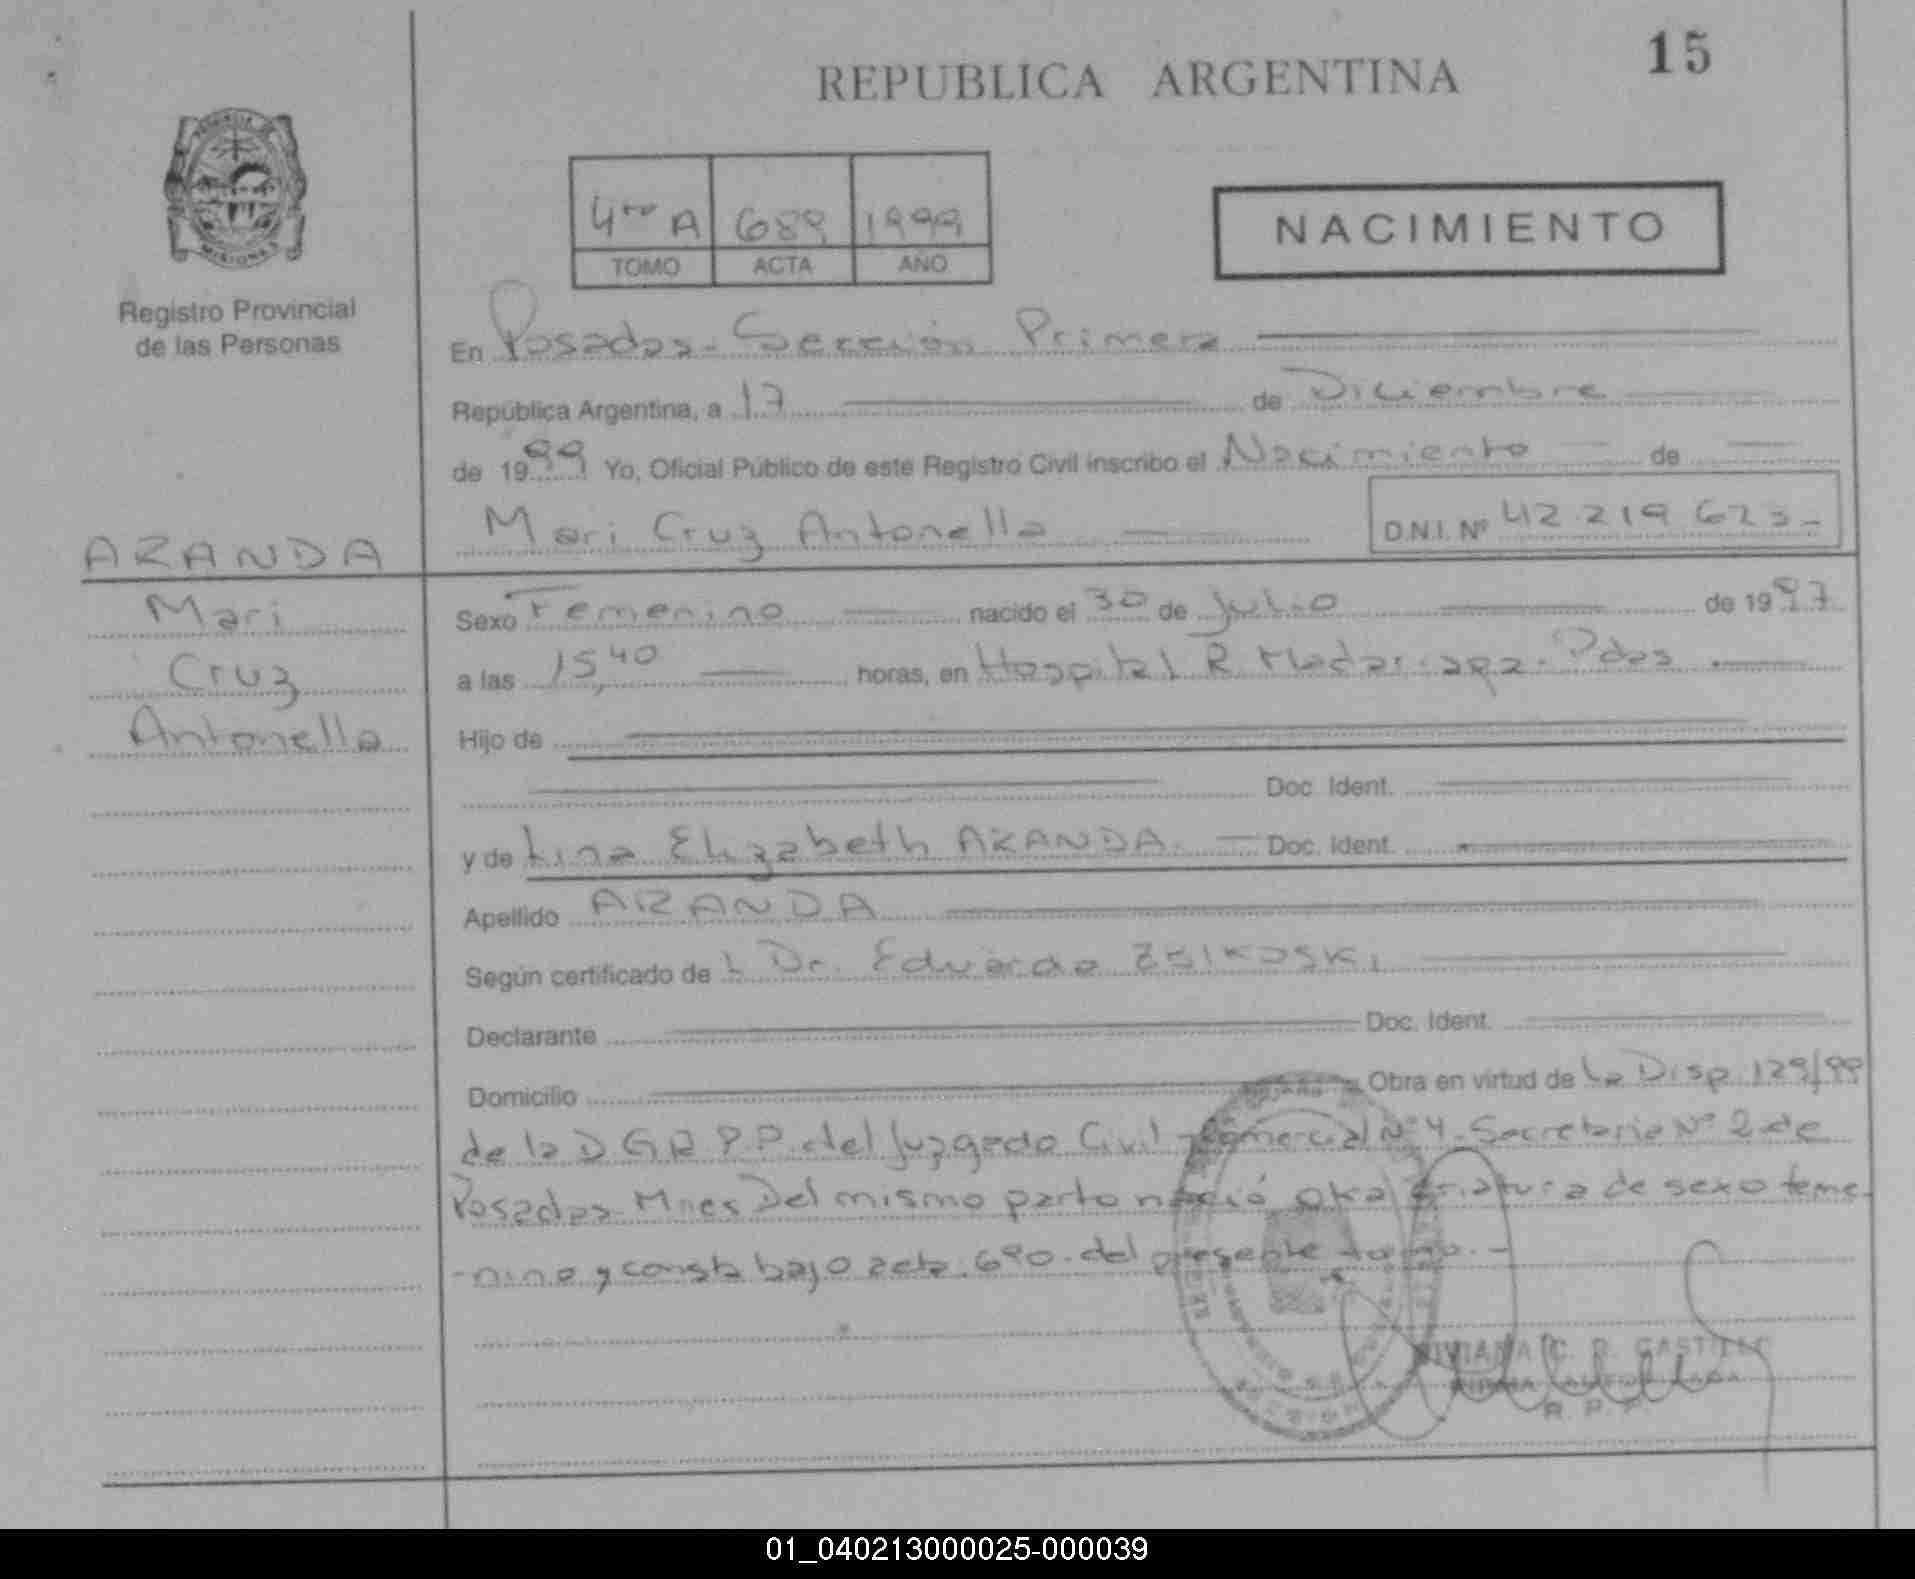 15
REPUBLICA ARGENTINA
PROVINCIA DE
MISIONES
4to A 689 1999
TOMO ACTA AÑO
NACIMIENTO
Registro Provincial
de las Personas
En Posadas - Sección Primera
República Argentina, a 17 de Diciembre
de 1999 Yo, Oficial Público de este Registro Civil inscribo el Nacimiento de
Mari Cruz Antonella D.N.I. Nº 42.219.623-
ARANDA
Mari
Cruz
Antonella
Sexo Femenino nacido el 30 de Julio de 1997
a las 15,40 horas, en Hospital R. Madariaga - Pdas
Hijo de
Doc. Ident.
y de Lina Elizabeth ARANDA. Doc. Ident.
Apellido ARANDA
Según certificado de l Dr. Eduardo ZSIKOSKI
Declarante Doc. Ident.
Domicilio Obra en virtud de La Disp. 129/99
de la D G R P.P. del Juzgado Civil y Comercial Nº 4 - Secretaria Nº 2 de
Posadas Mnes Del mismo parto nació otra criatura de sexo feme-
-nino y consta bajo acta 690 - del presente tomo.-
VIVIANA C. R. CASTILLO
FIRMA AUTORIZADA
R. P. P.
01_040213000025-000039